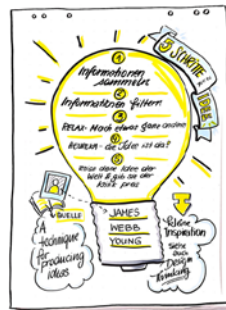 5 SCHRITTE
zur
IDEE
1
Informationen
sammeln
2
Informationen filtern
3
RELAX - Mach etwas ganz anderes
4
HEUREKA - die Idee ist da?
5
deine Idee der
Welt & gib sie der
Kritik preis
QUELLE
A
technique
for
producing
ideas
JAMES
WEBB
YOUNG
Inspiration
siehe
auch
Design
Thinking